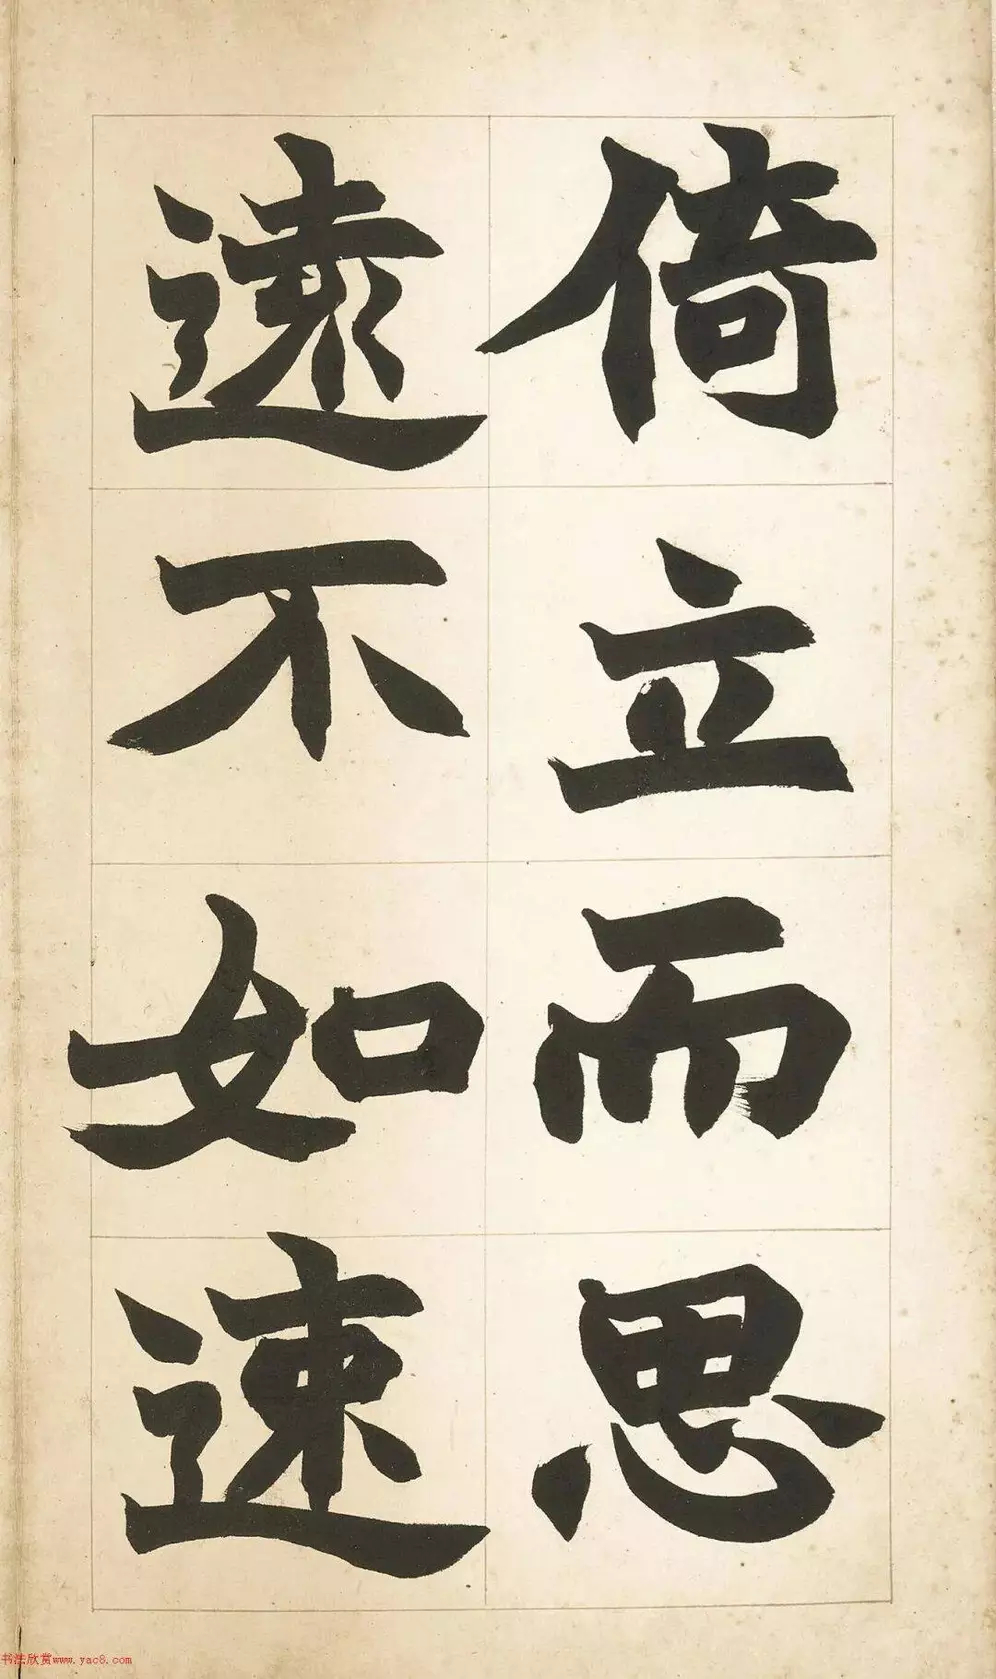 倚立而思
遠不如速
书法欣赏www.yac8.com